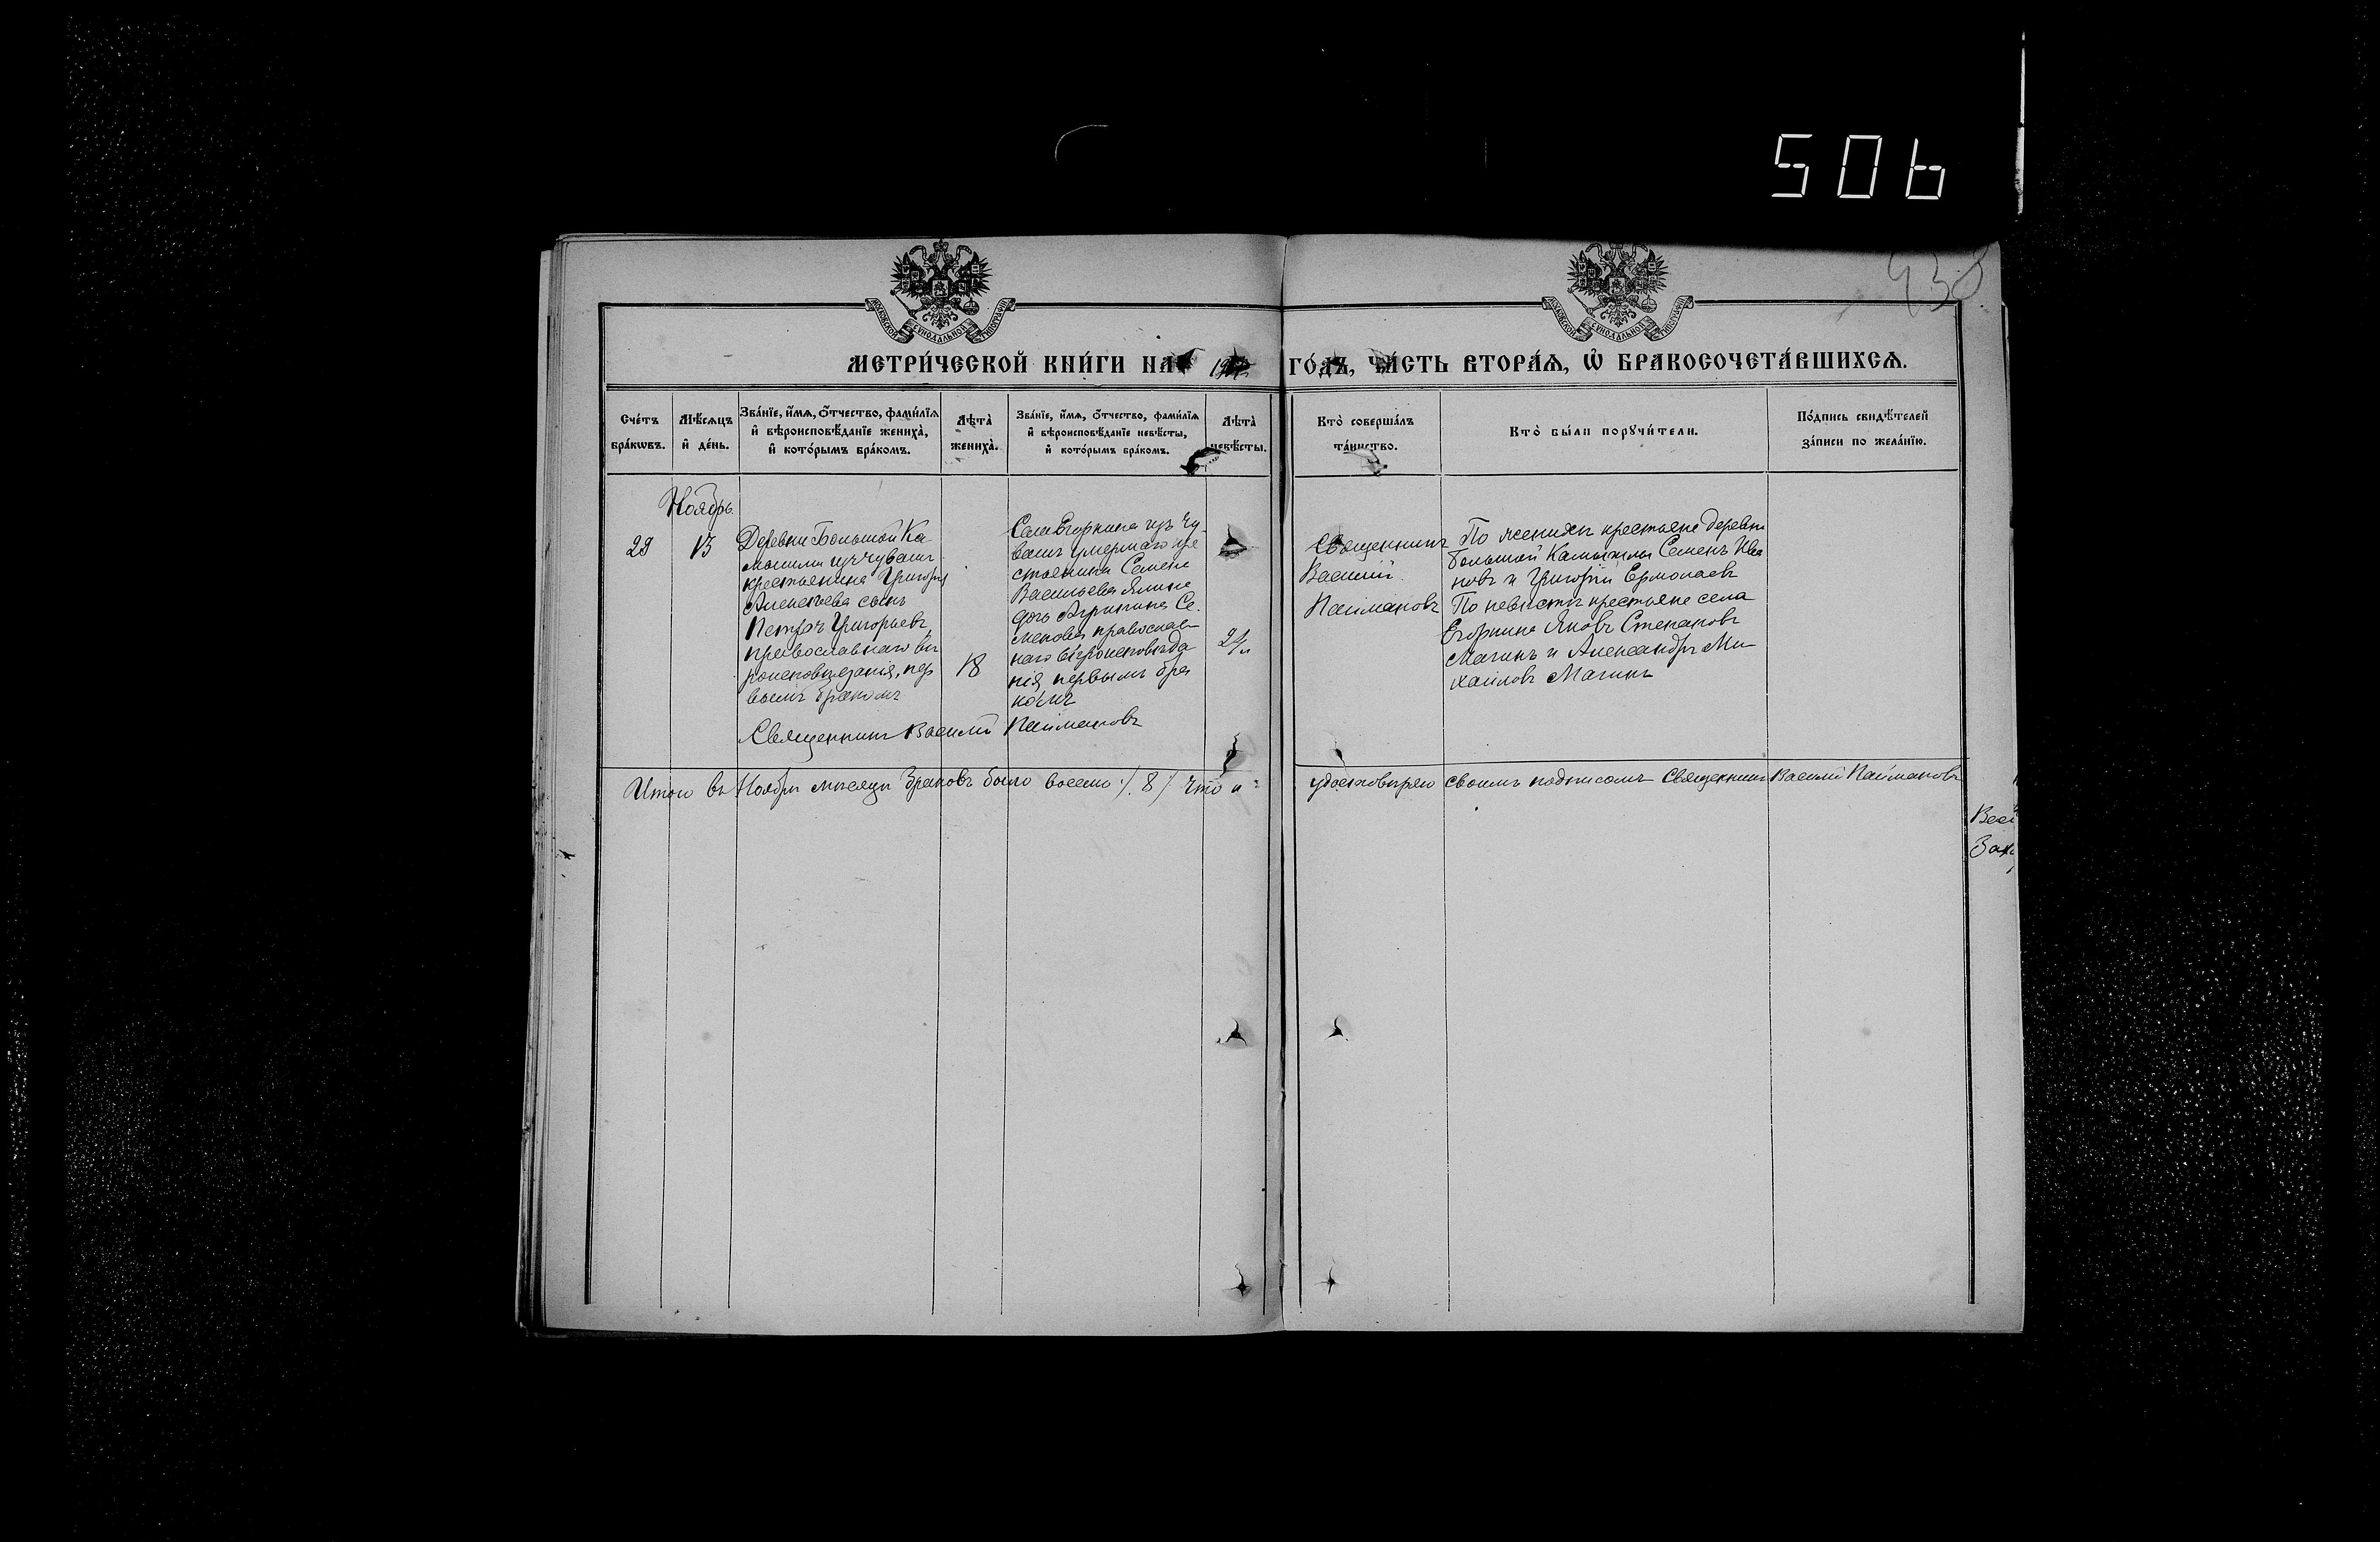 506
438
МОСКОВСКОЙ СѴНОДАЛЬНОЙ ТИПОГРАФІИ
МОСКОВСКОЙ СѴНОДАЛЬНОЙ ТИПОГРАФІИ
МЕТРИ́ЧЕСКОЙ КНИ́ГИ НА ГО́ДЪ, ЧА́СТЬ ВТОРА́Ѧ, Ѽ БРАКОСОЧЕТА́ВШИХСѦ.
Сче́тъ бра́кѡвъ.
Мѣ́сѧцъ и҆ де́нь.
Зва́нїе, и҆́мѧ, ѻ҆́тчество, фами́лїѧ и҆ вѣроисповѣ́данїе жениха̀, и҆ кото́рымъ бра́комъ.
Лѣ́та̀ жениха̀.
Зва́нїе, и҆́мѧ, ѻ҆́тчество, фами́лїѧ и҆ вѣроисповѣ́данїе невѣ́сты, и҆ кото́рымъ бра́комъ.
Лѣ́та̀ невѣ́сты.
Кто̀ соверша́лъ та́инство.
Кто̀ бы́ли порꙋчи́тели.
По́дпись свидѣ́телей за́писи по жела́нїю.
Ноябрь
29
13
Деревни Большой Ка
мышлы изъ чувашъ
крестьянина Григорія
Алексѣева сынъ
Петръ Григорьевъ,
православнаго вѣ
роисповѣданія, пер
вымъ бракомъ
18
Села Егоркина изъ Чу-
вашъ умершаго кре
стьянина Семена
Васильева Ялина
дочь Агрипина Се-
менова православ
наго вѣроисповѣда
нія первымъ бра
комъ
Священникъ
Василій
Пайманов
По женихѣ крестьяне деревни
Большой Камышлы Семенъ Ива
новъ и Григорій Ермолаевъ
По невѣстѣ крестьяне села
Егоркина Яковъ Степановъ
Мачинъ и Александръ Ми
хайловъ Мачинъ
Священникъ Василій Паймановъ
Итого въ Ноябрѣ мѣсяцѣ браковъ было восемь /.8/ что и удостовѣряю своимъ подписомъ Священникъ Василій Паймановъ